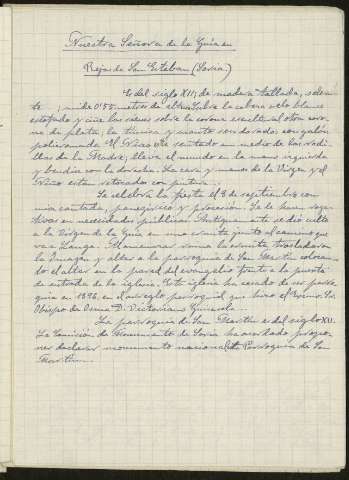 Nuestra Señora de la Guía en
Rejas de San Esteban (Soria)
Es del siglo XIII, de madera tallada, seden-
te, mide 0'55 metros de altura. Sobre la cabeza velo blanco
estofado y ciñe las sienes sobre la corona escultural otra coro-
na de plata; la túnica y manto son dorados con galón
policromado. El Niño está sentado en medio de las rodi-
llas de la Madre; lleva el mundo en la mano izquierda
y bendice con la derecha. La cara y manos de la Virgen y el
Niño están retocadas con pintura.
Se celebra la fiesta el 8 de septiembre con
misa cantada, panegírico y procesión. Se le hacen roga-
tivas en necesidades públicas. Antiguamente se dió culto
a la Virgen de la Guía en una ermita junto al camino que
va a Langa. Al amenazar ruina la ermita, trasladaron
la Imagen y altar a la parroquia de San Martín colocan-
do el altar en la pared del evangelio frente a la puerta
de entrada de la iglesia. Esta iglesia ha cesado de ser parro-
quia en 1896, en el arreglo parroquial que hizo el Excmo. Sr.
Obispo de Osma D. Victoriano Guisasola.
La parroquia de San Martín es del siglo XII.
La Comisión de Monumentos de Soria ha acordado propo-
ner declarar monumento nacional la Parroquia de San
Martín.